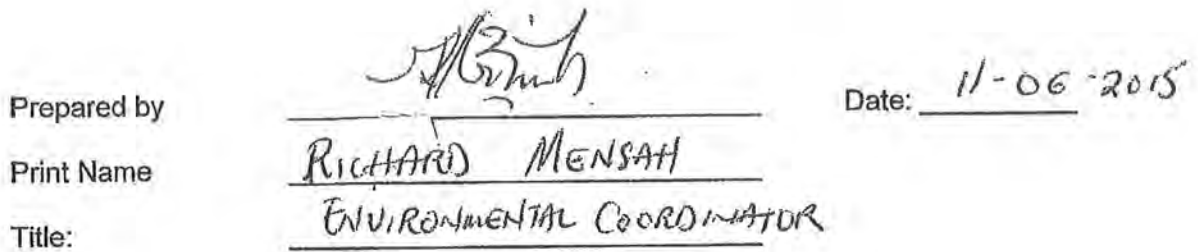 Prepared by Date: 11-06-2015
Print Name RICHARD MENSAH
Title: ENVIRONMENTAL COORDINATOR